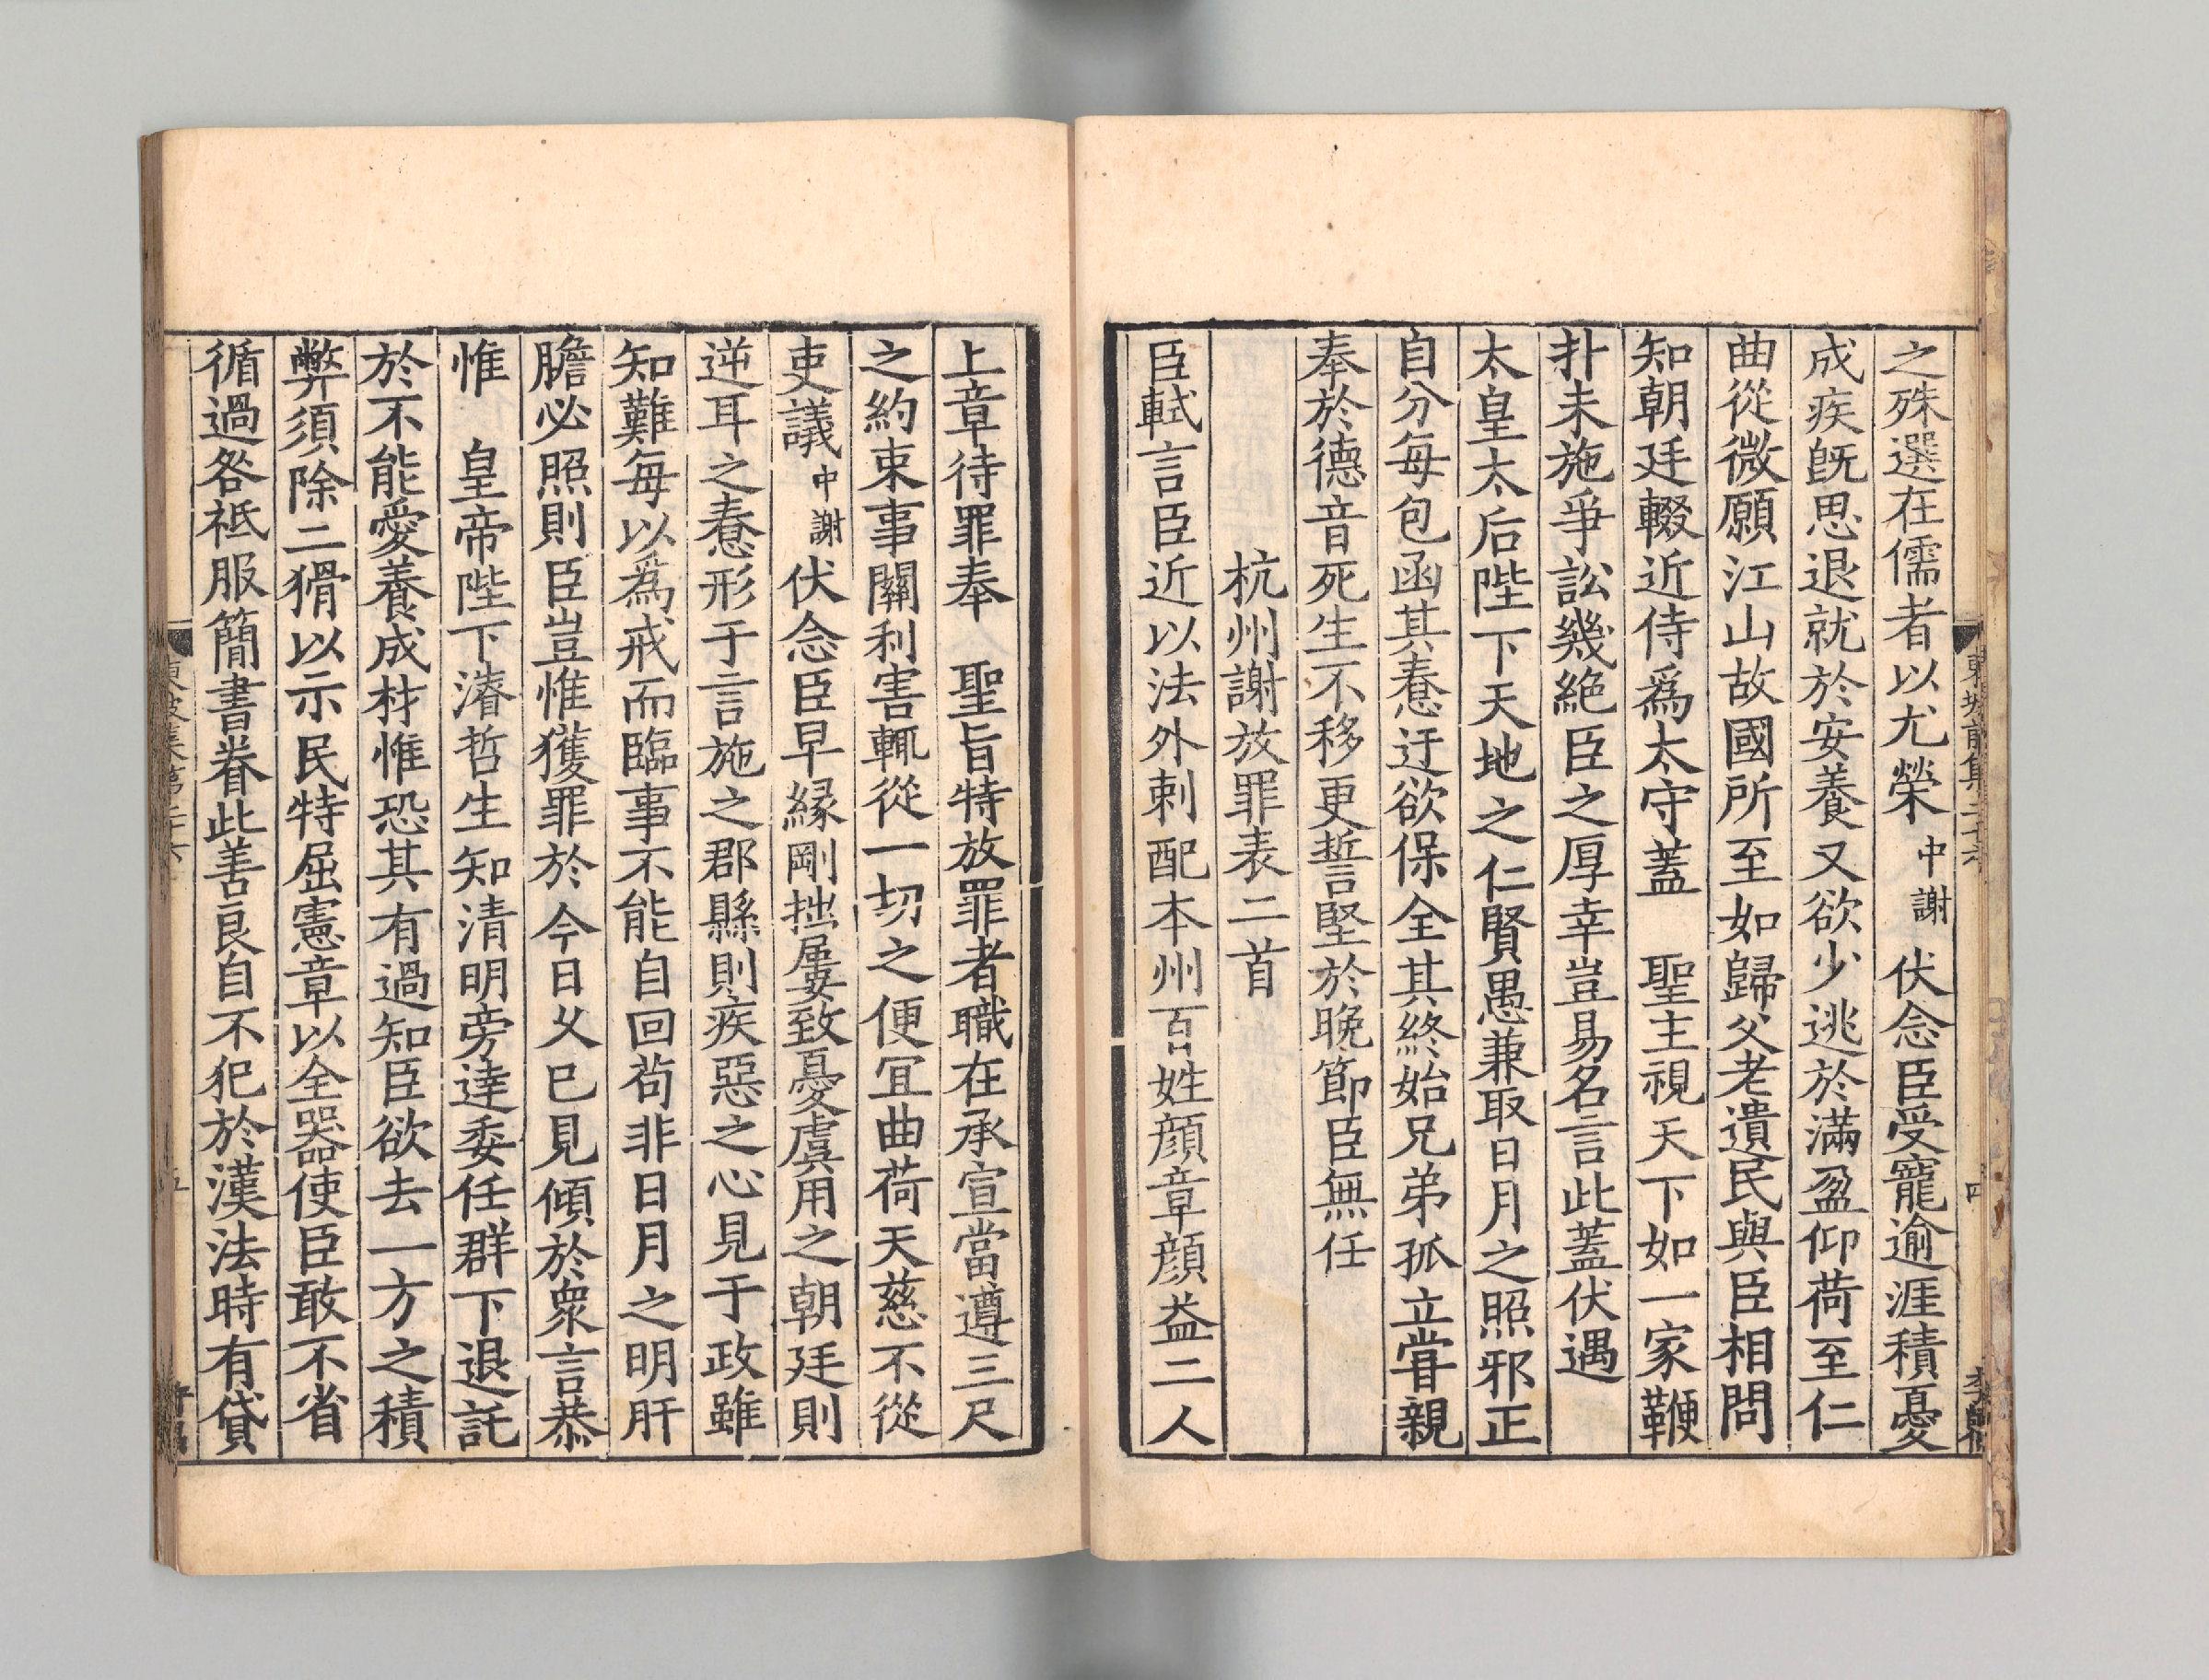 之殊選在儒者以尤榮中謝伏念臣受寵逾涯積憂
成疾旣思退就於安養又欲少逃於滿盈仰荷至仁
曲從微願江山故國所至如歸父老遺民與臣相問
知朝廷輟近侍爲太守蓋　聖主視天下如一家鞭
扑未施爭訟幾絶臣之厚幸豈易名言此蓋伏遇
太皇太后陛下天地之仁賢愚兼取日月之照邪正
自分每包函其惷迂欲保全其終始兄弟孤立甞親
奉於德音死生不移更誓堅於晚節臣無任
杭州謝放罪表二首
臣軾言臣近以法外刺配本州百姓顔章顔益二人
上章待罪奉　聖旨特放罪者職在承宣當遵三尺
之約束事關利害輒從一切之便冝曲荷天慈不從
吏議中謝伏念臣早縁剛拙屢致憂虞用之朝廷則
逆耳之惷形于言施之郡縣則疾惡之心見于政雖
知難每以爲戒而臨事不能自回苟非日月之明肝
膽必照則臣豈惟獲罪於今日乂已見傾於衆言恭
惟　皇帝陛下濬哲生知清明旁達委任群下退託
於不能愛養成材惟恐其有過知臣欲去一方之積
弊須除二猾以示民特屈憲章以全器使臣敢不省
循過咎祗服簡書眷此善良自不犯於漢法時有貸
東坡前集二十六
四
東坡集第二十六
五